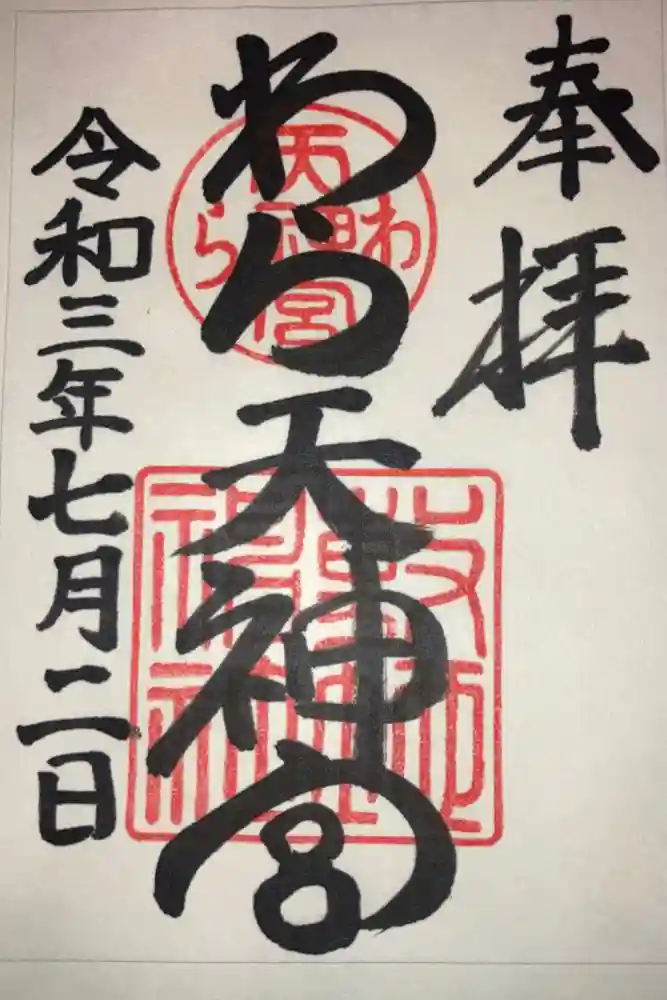 奉拝
わら天神宮
令和三年七月二日
わら
天神宮
敷地神社